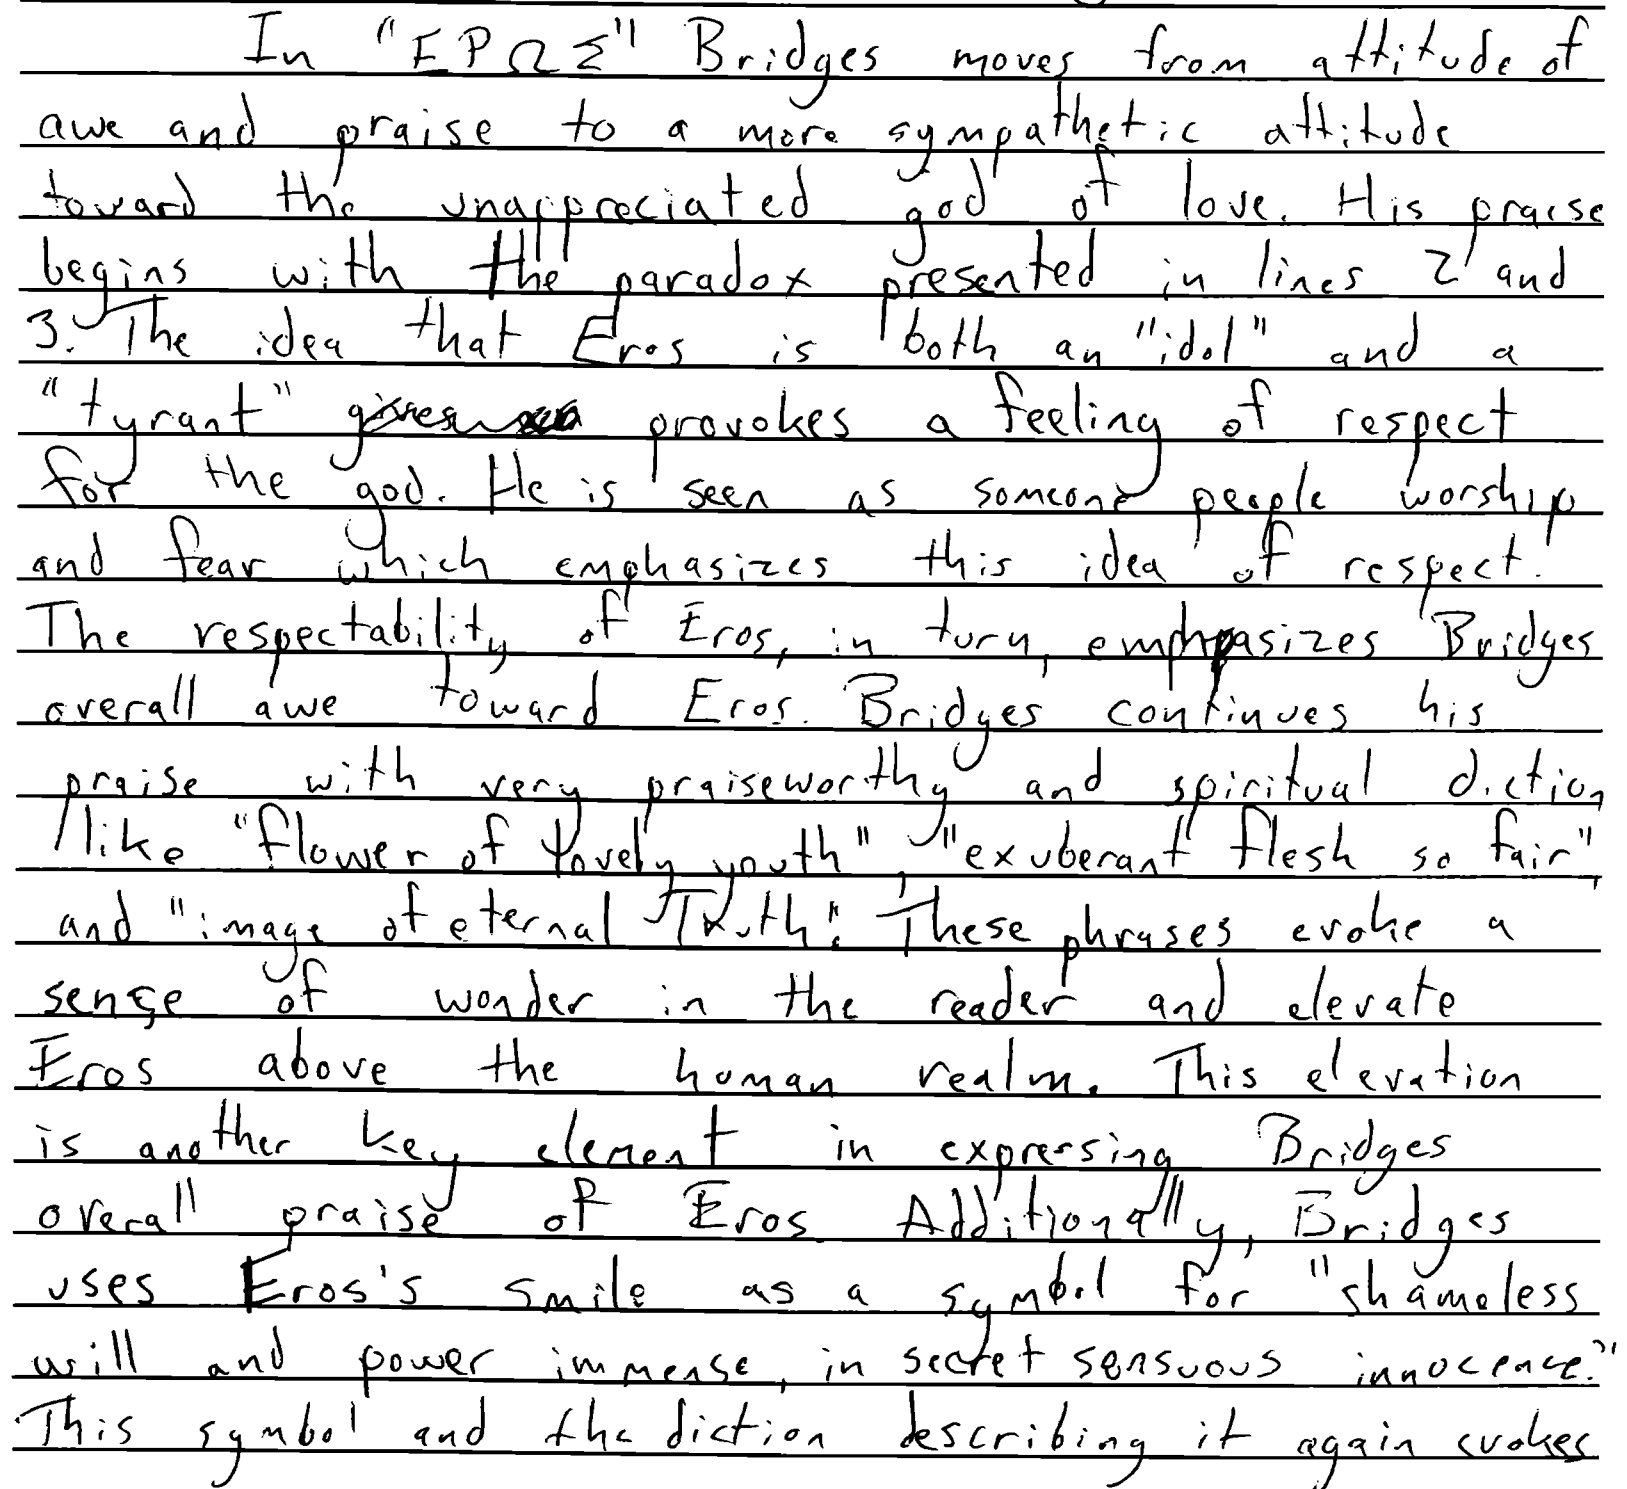 In "ΕΡΩΣ" Bridges moves from attitude of
awe and praise to a more sympathetic attitude
toward the unappreciated god of love. His praise
begins with the paradox presented in lines 2 and
3. The idea that Eros is both an "idol" and a
"tyrant" provokes a feeling of respect
for the god. He is seen as someone people worship
and fear which emphasizes this idea of respect.
The respectability of Eros, in turn, emphasizes Bridges
overall awe toward Eros. Bridges continues his
praise with very praiseworthy and spiritual diction
like "flower of lovely youth", "exuberant flesh so fair",
and "image of eternal Truth". These phrases evoke a
sense of wonder in the reader and elevate
Eros above the human realm. This elevation
is another key element in expressing Bridges
overall praise of Eros. Additionally, Bridges
uses Eros's smile as a symbol for "shameless
will and power immense, in secret sensuous innocence."
This symbol and the diction describing it again evokes